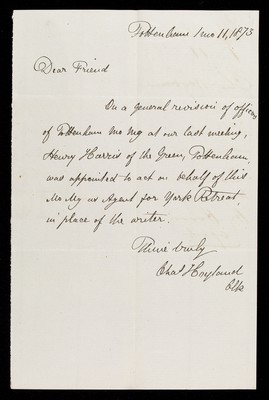 Tottenham 1 mo 11, 1873
Dear Friend
On a general revision of officers
of Tottenham Mo Mg at our last meeting,
Henry Harris of the Green, Tottenham,
was appointed to act on behalf of this
Mo Mg as Agent for York Retreat,
in place of the writer.
Thine truly
Chas Hoyland
Clk